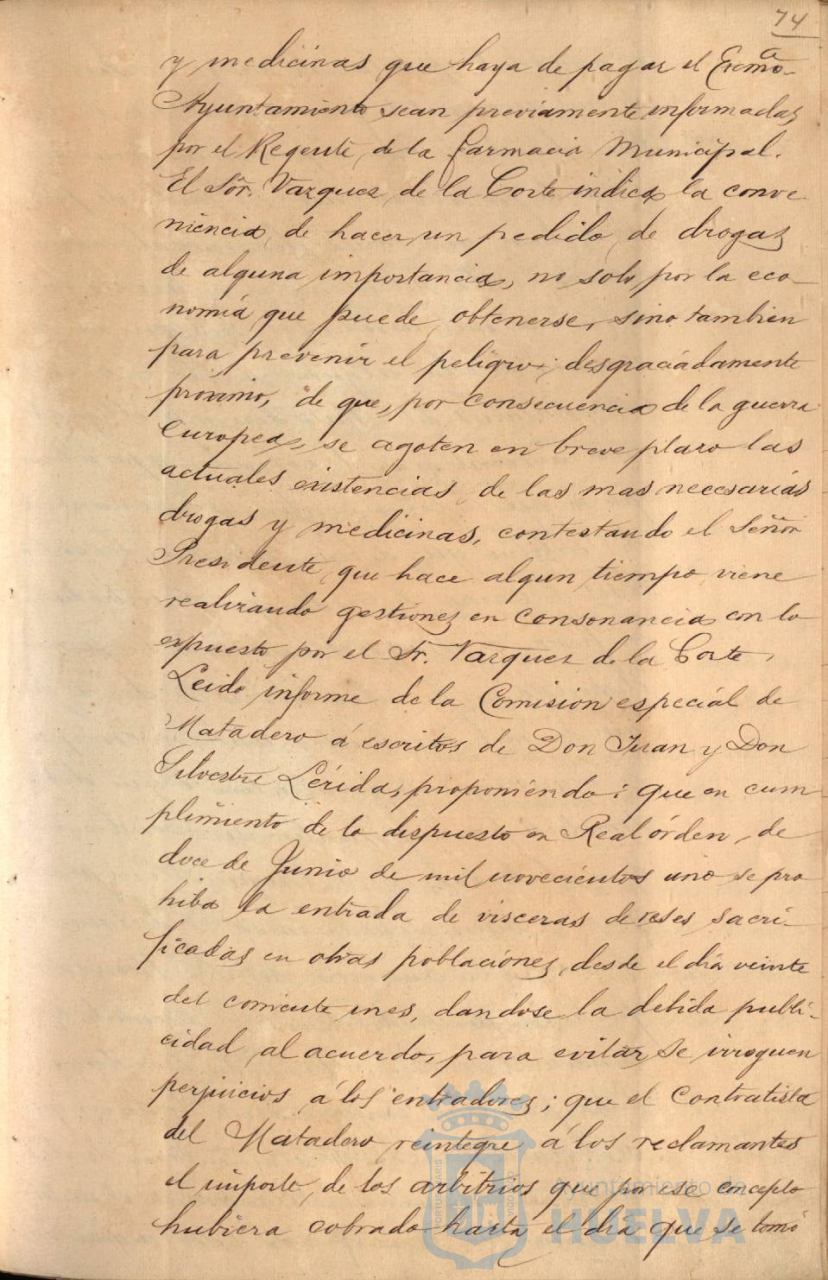 74
y medicinas que haya de pagar el Excmo.
Ayuntamiento sean previamente informadas
por el Regente de la farmacia Municipal.
El Sõr. Vazquez de la Corte indica la conve-
niencia de hacer un pedido de drogas
de alguna importancia, no solo por la eco-
nomía que puede obtenerse, sino tambien
para prevenir el peligro, desgraciadamente
proximo, de que, por consecuencia de la guerra
europea, se agoten en breve plazo las
actuales existencias de las mas necesarias
drogas y medicinas, contestando el Señor
Presidente que hace algun tiempo viene
realizando gestiones en consonancia con lo
espuesto por el Sr. Vazquez de la Corte.
Leido informe de la Comision especial de
Matadero á escritos de Don Juan y Don
Silvestre Lérida, proponiendo: que en cum
plimiento de lo dispuesto en Real órden de
doce de Junio de mil novecientos uno se pro
hiba la entrada de visceras de reses sacri-
ficadas en otras poblaciones desde el día veinte
del corriente mes, dandose la debida publi-
cidad al acuerdo, para evitar se irroguen
perjuicios á los entradores; que el Contratista
del Matadero reintegre á los reclamantes
el importe de los arbitrios que por ese concepto
hubiera cobrado hasta el día que se tomó
Ayuntamiento de
HUELVA